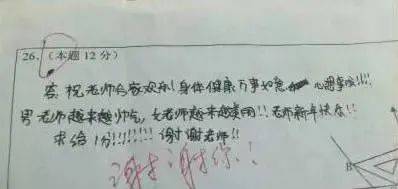 26.(本题12分)
答:祝老师合家欢乐!身体健康 万事如意 心想事成!!!!
男老师越来越帅气,女老师越来越美丽!!老师新年快乐!!
求给1分!!!!!!!! 谢谢老师!!
谢谢你!!
B